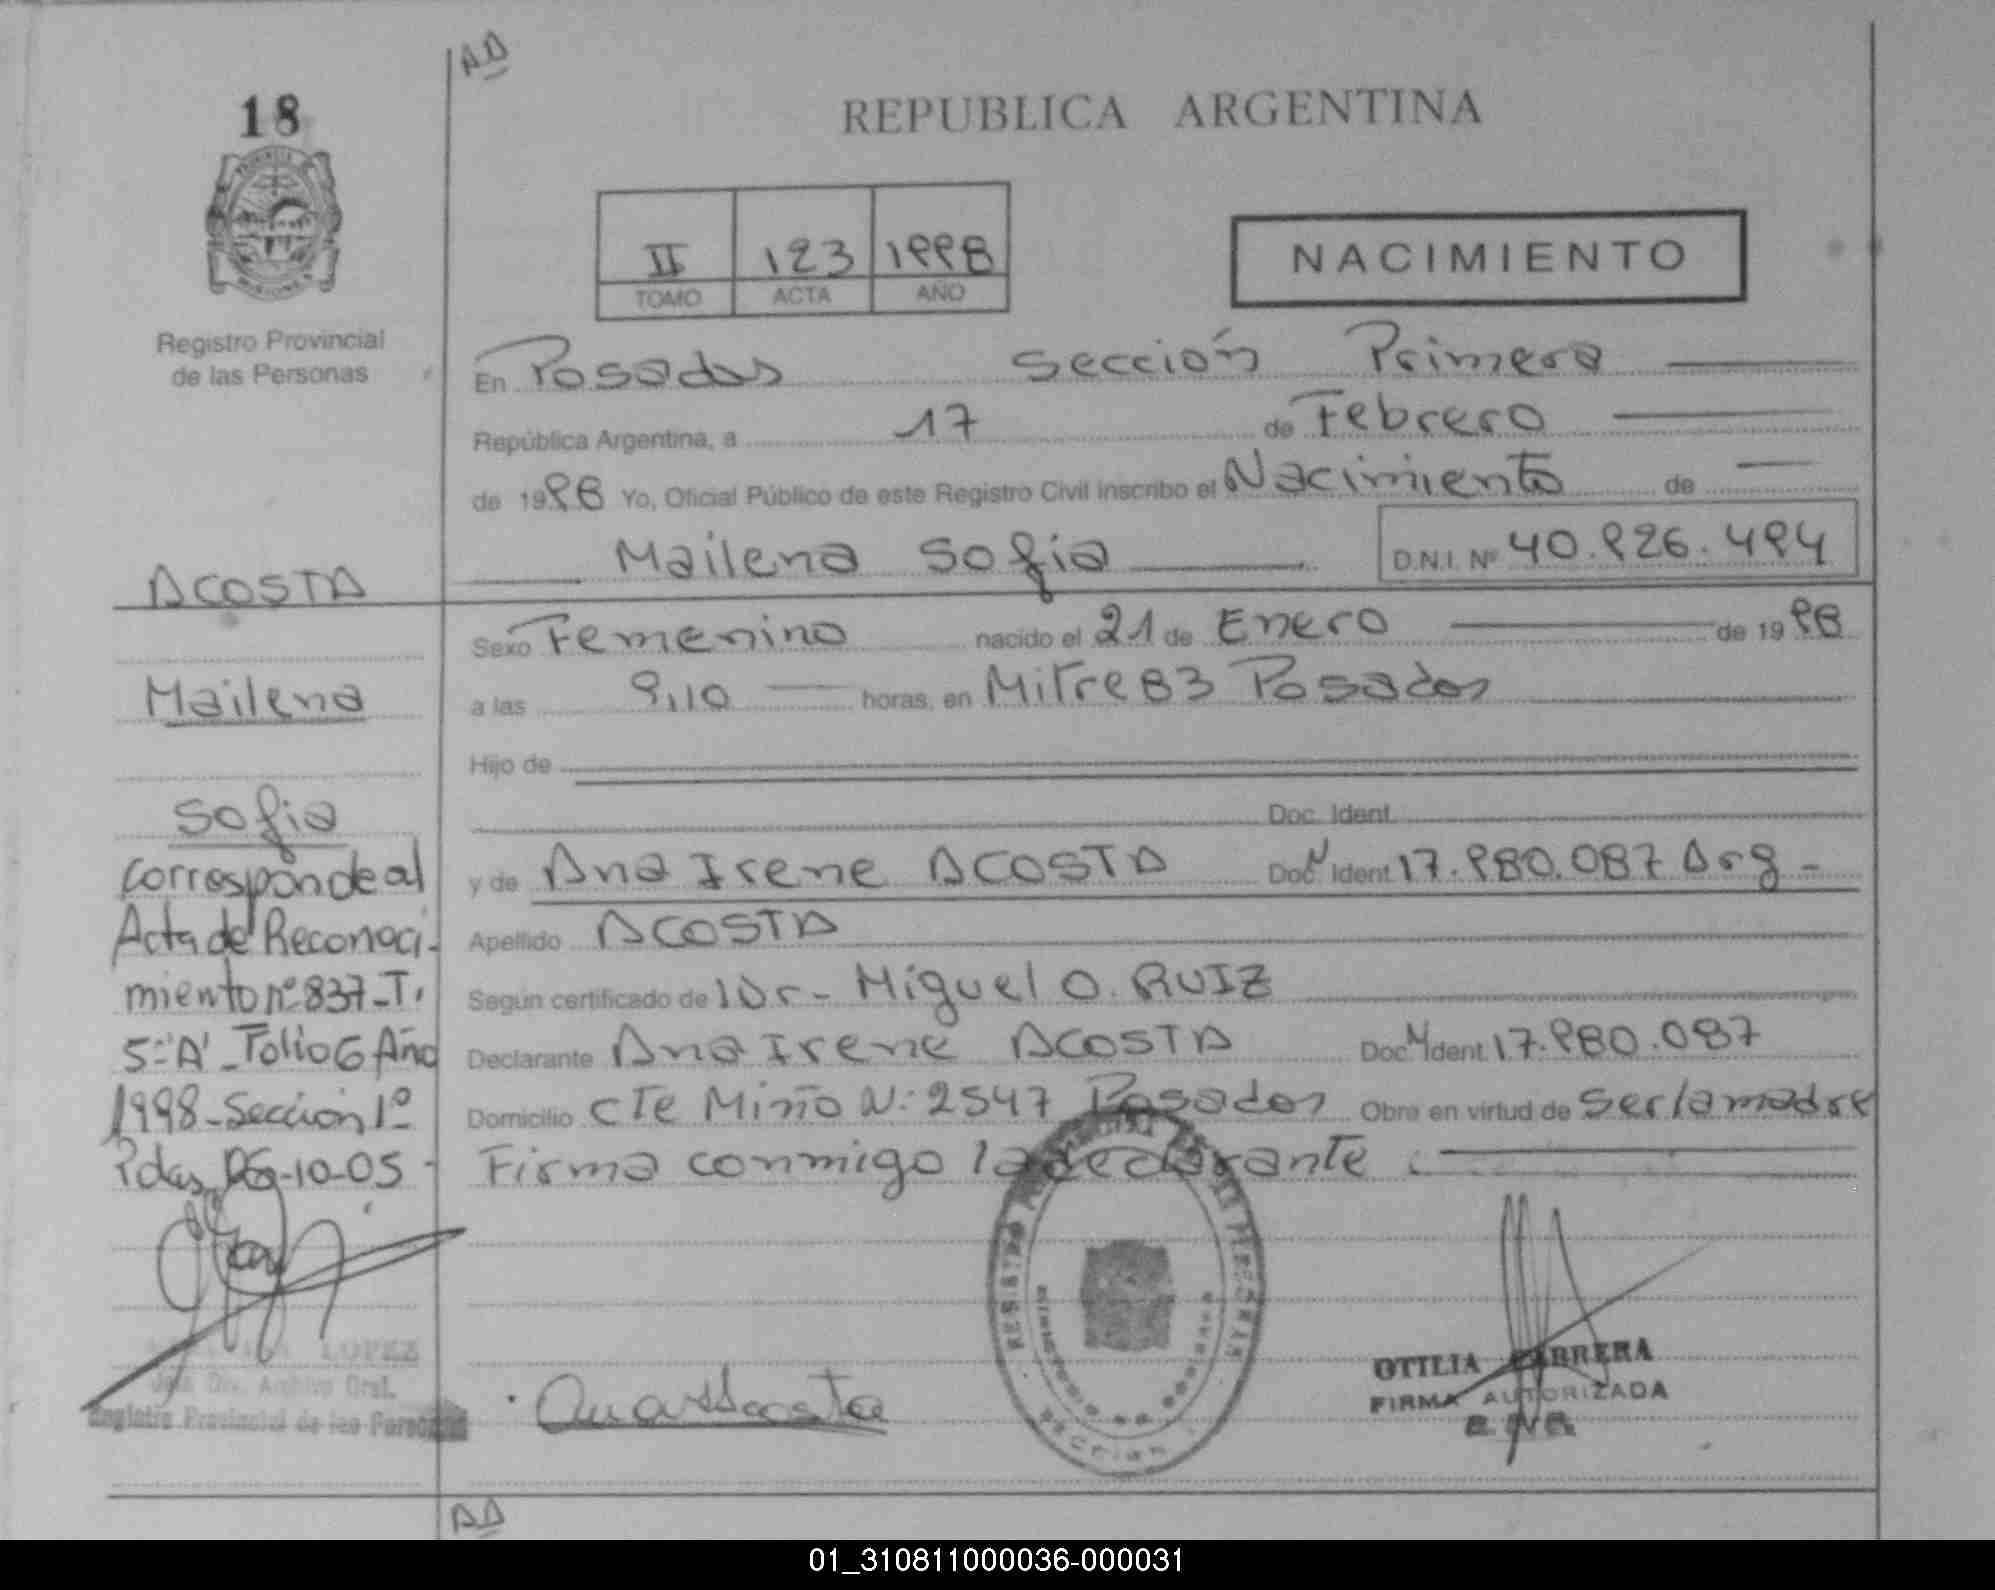 AD
18
REPUBLICA ARGENTINA
II 123 1998
TOMO ACTA AÑO
NACIMIENTO
Registro Provincial
de las Personas
En Posadas Sección Primera
República Argentina, a 17 de Febrero
de 1998 Yo, Oficial Público de este Registro Civil inscribo el Nacimiento de
Mailena Sofia D.N.I. Nº 40.926.494
Sexo Femenino nacido el 21 de Enero de 1998
a las 9,10 horas, en Mitre 83 Posadas
Hijo de
Doc. Ident.
y de Ana Irene ACOSTA Doc. N Ident 17.980.087 Arg -
Apellido ACOSTA
Según certificado de Dr- Miguel O. RUIZ
Declarante Ana Irene ACOSTA Doc. N Ident 17.980.087
Domicilio cTe Miño N: 2547 Posadas Obra en virtud de ser la madre
Firma conmigo la declarante.
ACOSTA
Mailena
Sofia
corresponde al
Acta de Reconoci-
miento nº 837-T.
5-"A"-Folio 6 Año
1998-Sección 1º
Pdas, 06-10-05-
LOPEZ
Jefa Div. Archivo Gral.
Registro Provincial de las Personas
OTILIA BARRERA
FIRMA AUTORIZADA
AD
01_310811000036-000031